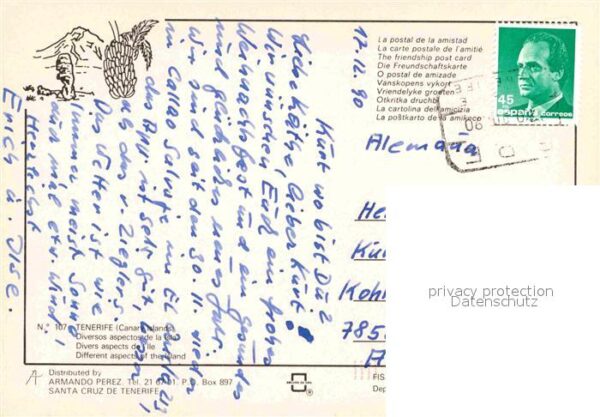 La postal de la amistad
La carte postale de l'amitié
The friendship post card
Die Freundschaftskarte
O postal de amizade
Vänskopens vykort
Vriendelyke groeten
Otkritka druchbi
La cartolina dell'amicizia
La postkarto de la amikeco
45
españa correos
12.12.90
Kurt wo bist Du?
Liebe Käthe, lieber Kurt!
Wir wünschen Euch ein frohes
Weihnachtsfest und ein gesundes
und glückliches neues Jahr.
Wir sind seit dem 30.11. wieder
in Callao Salvaje im El
das Apt. ist sehr gut,
das v. Zieglers.
Das Wetter ist wie
immer meist Sonne
und mal etw. Wind.
Herzlichst
Erich u. Ilse.
Alemana
He
Kü
Kohl
785
privacy protection
Datenschutz
N.º 107 TENERIFE (Canary Islands)
Diversos aspectos de la Isla
Divers aspects de l'île
Different aspects of the island
Distributed by
ARMANDO PEREZ. Tel. 21 67 01. P.O. Box 897
SANTA CRUZ DE TENERIFE
FIS
Dep